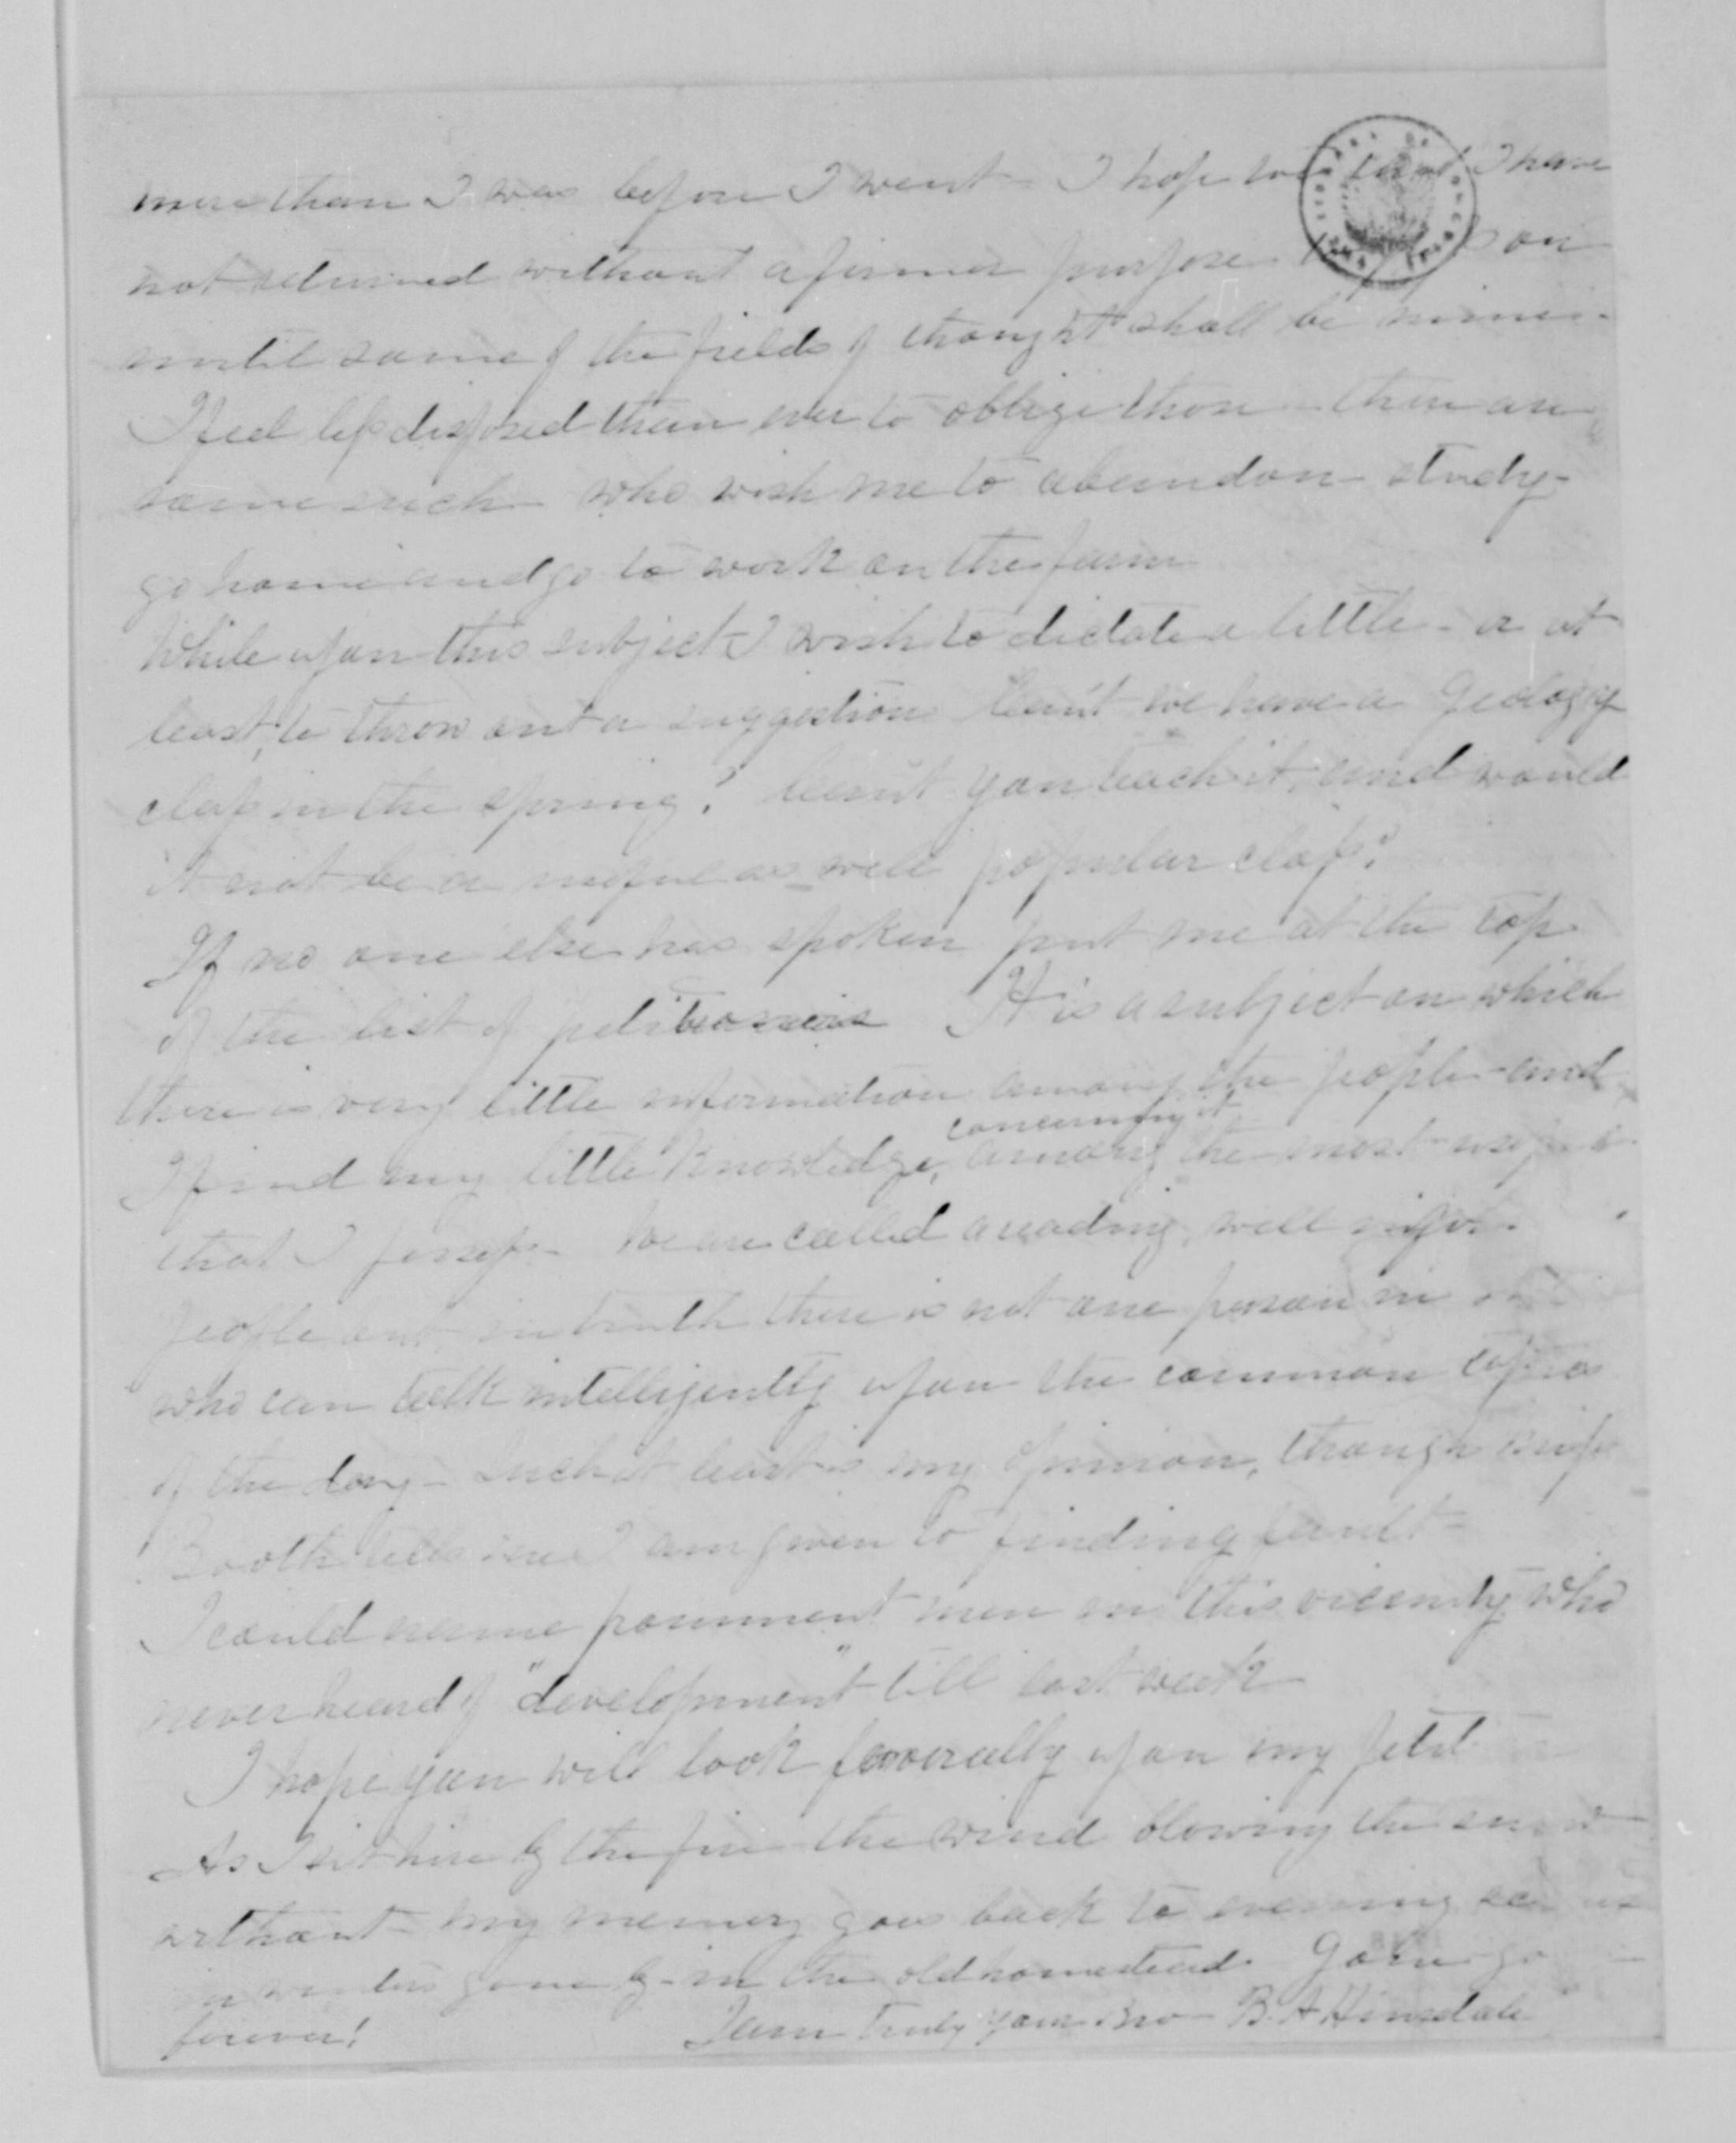 more than I was before I went - I hope too that I have
not returned without a firmer purpose to on
until some of the fields of thought shall be mine -
I feel less disposed than ever to oblige those - there are
some such - who wish me to abandon study -
go home and go to work on the farm
While upon this subject I wish to dictate a little - or at
least, to throw out a suggestion Can't we have a Geology
class in the spring? Can't you teach it, and would
it not be a useful as well popular class?
If no one else has spoken put me at the top
of the list of petitioners It is a subject on which
there is very little information among the people - and
concerning it
I find my little knowledge, among the most
that I possess - We are called a reading, well
people and in truth there is not one person in
who can talk intelligently upon the common topics
of the day - Such at least is my opinion, though
Booth tells me I am given to finding fault -
I could name pominent men in this vicinity who
never heard of "development" till last week
I hope you will look favorably upon my
As I sit here by the fire the wind blowing the snow
without - my memory goes back to evening
in winters gone by - in the old homestead. Gone
forever!
I am Truly your Bro - B. A Hinsdale